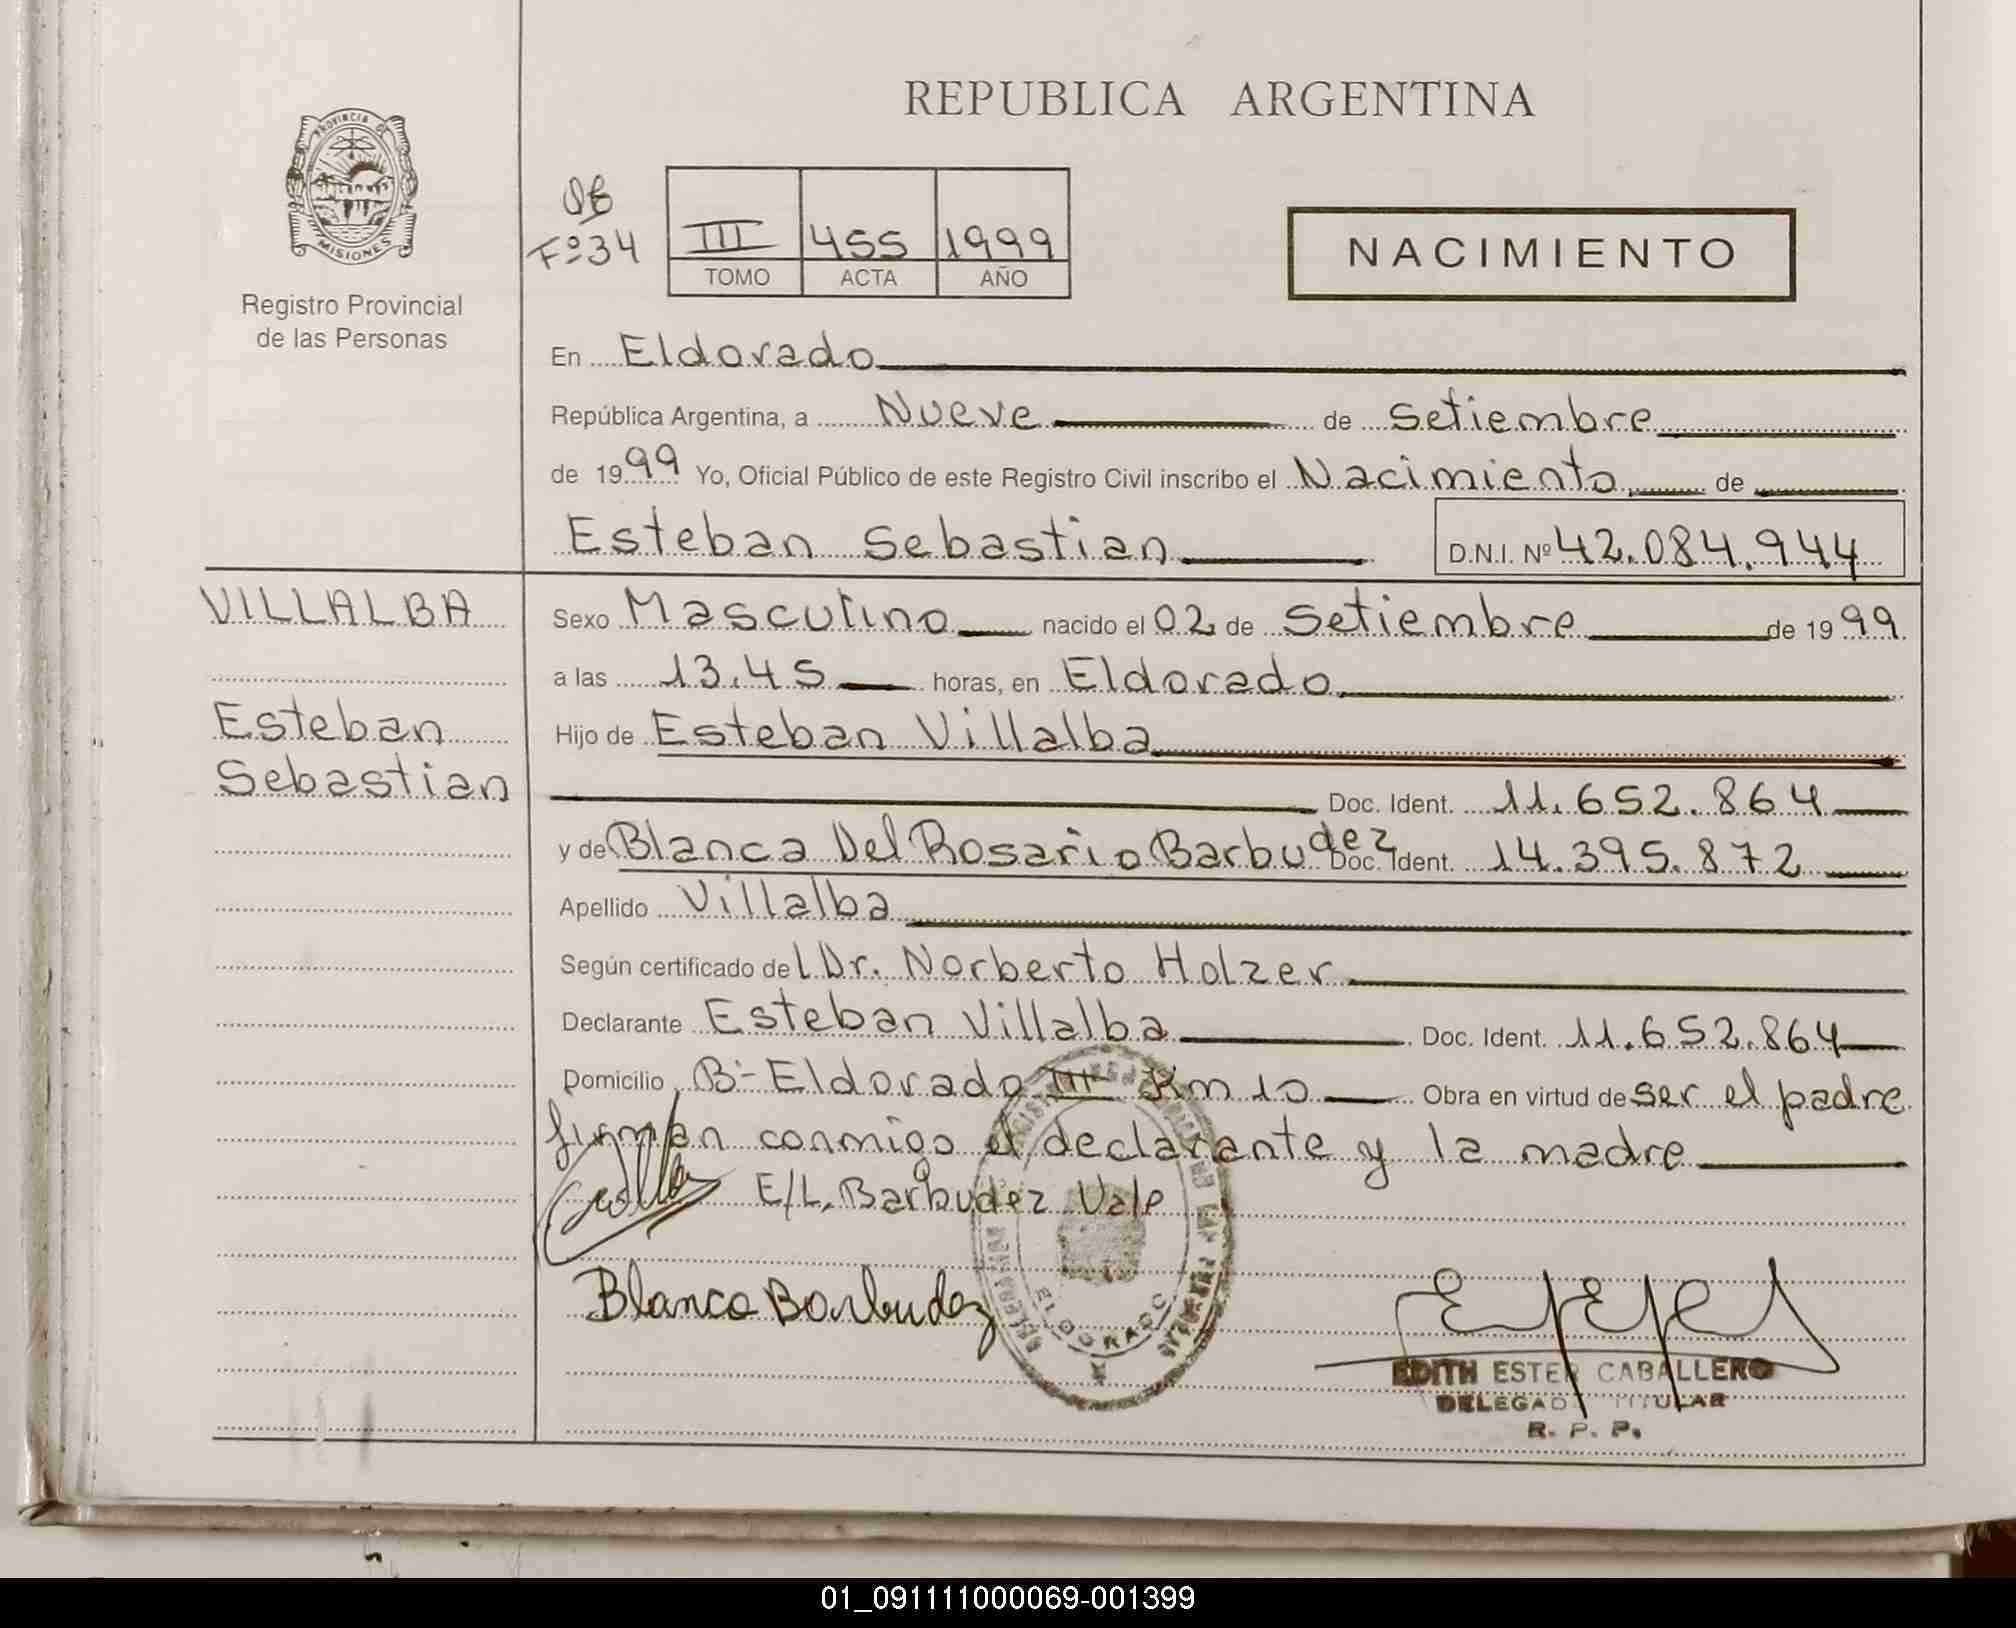 REPUBLICA ARGENTINA
PROVINCIA DE
MISIONES
Registro Provincial
de las Personas
Fº 34
III 455 1999
TOMO ACTA AÑO
NACIMIENTO
En Eldorado
República Argentina, a Nueve de Setiembre
de 1999 Yo, Oficial Público de este Registro Civil inscribo el Nacimiento de
Esteban Sebastian D.N.I. Nº 42.084.944
VILLALBA
Esteban
Sebastian
Sexo Masculino nacido el 02 de Setiembre de 1999
a las 13.45 horas, en Eldorado
Hijo de Esteban Villalba
Doc. Ident. 11.652.864
y de Blanca Del Rosario Barbudez Doc. Ident. 14.395.872
Apellido Villalba
Según certificado del Dr. Norberto Holzer
Declarante Esteban Villalba Doc. Ident. 11.652.864
Domicilio Bº Eldorado III Km 10 Obra en virtud de ser el padre
firman conmigo el declarante y la madre
E/L. Barbudez Vale
Blanca Barbudez
ELDORADO
EDITH ESTER CABALLERO
TITULAR
R. P. P.
01_091111000069-001399